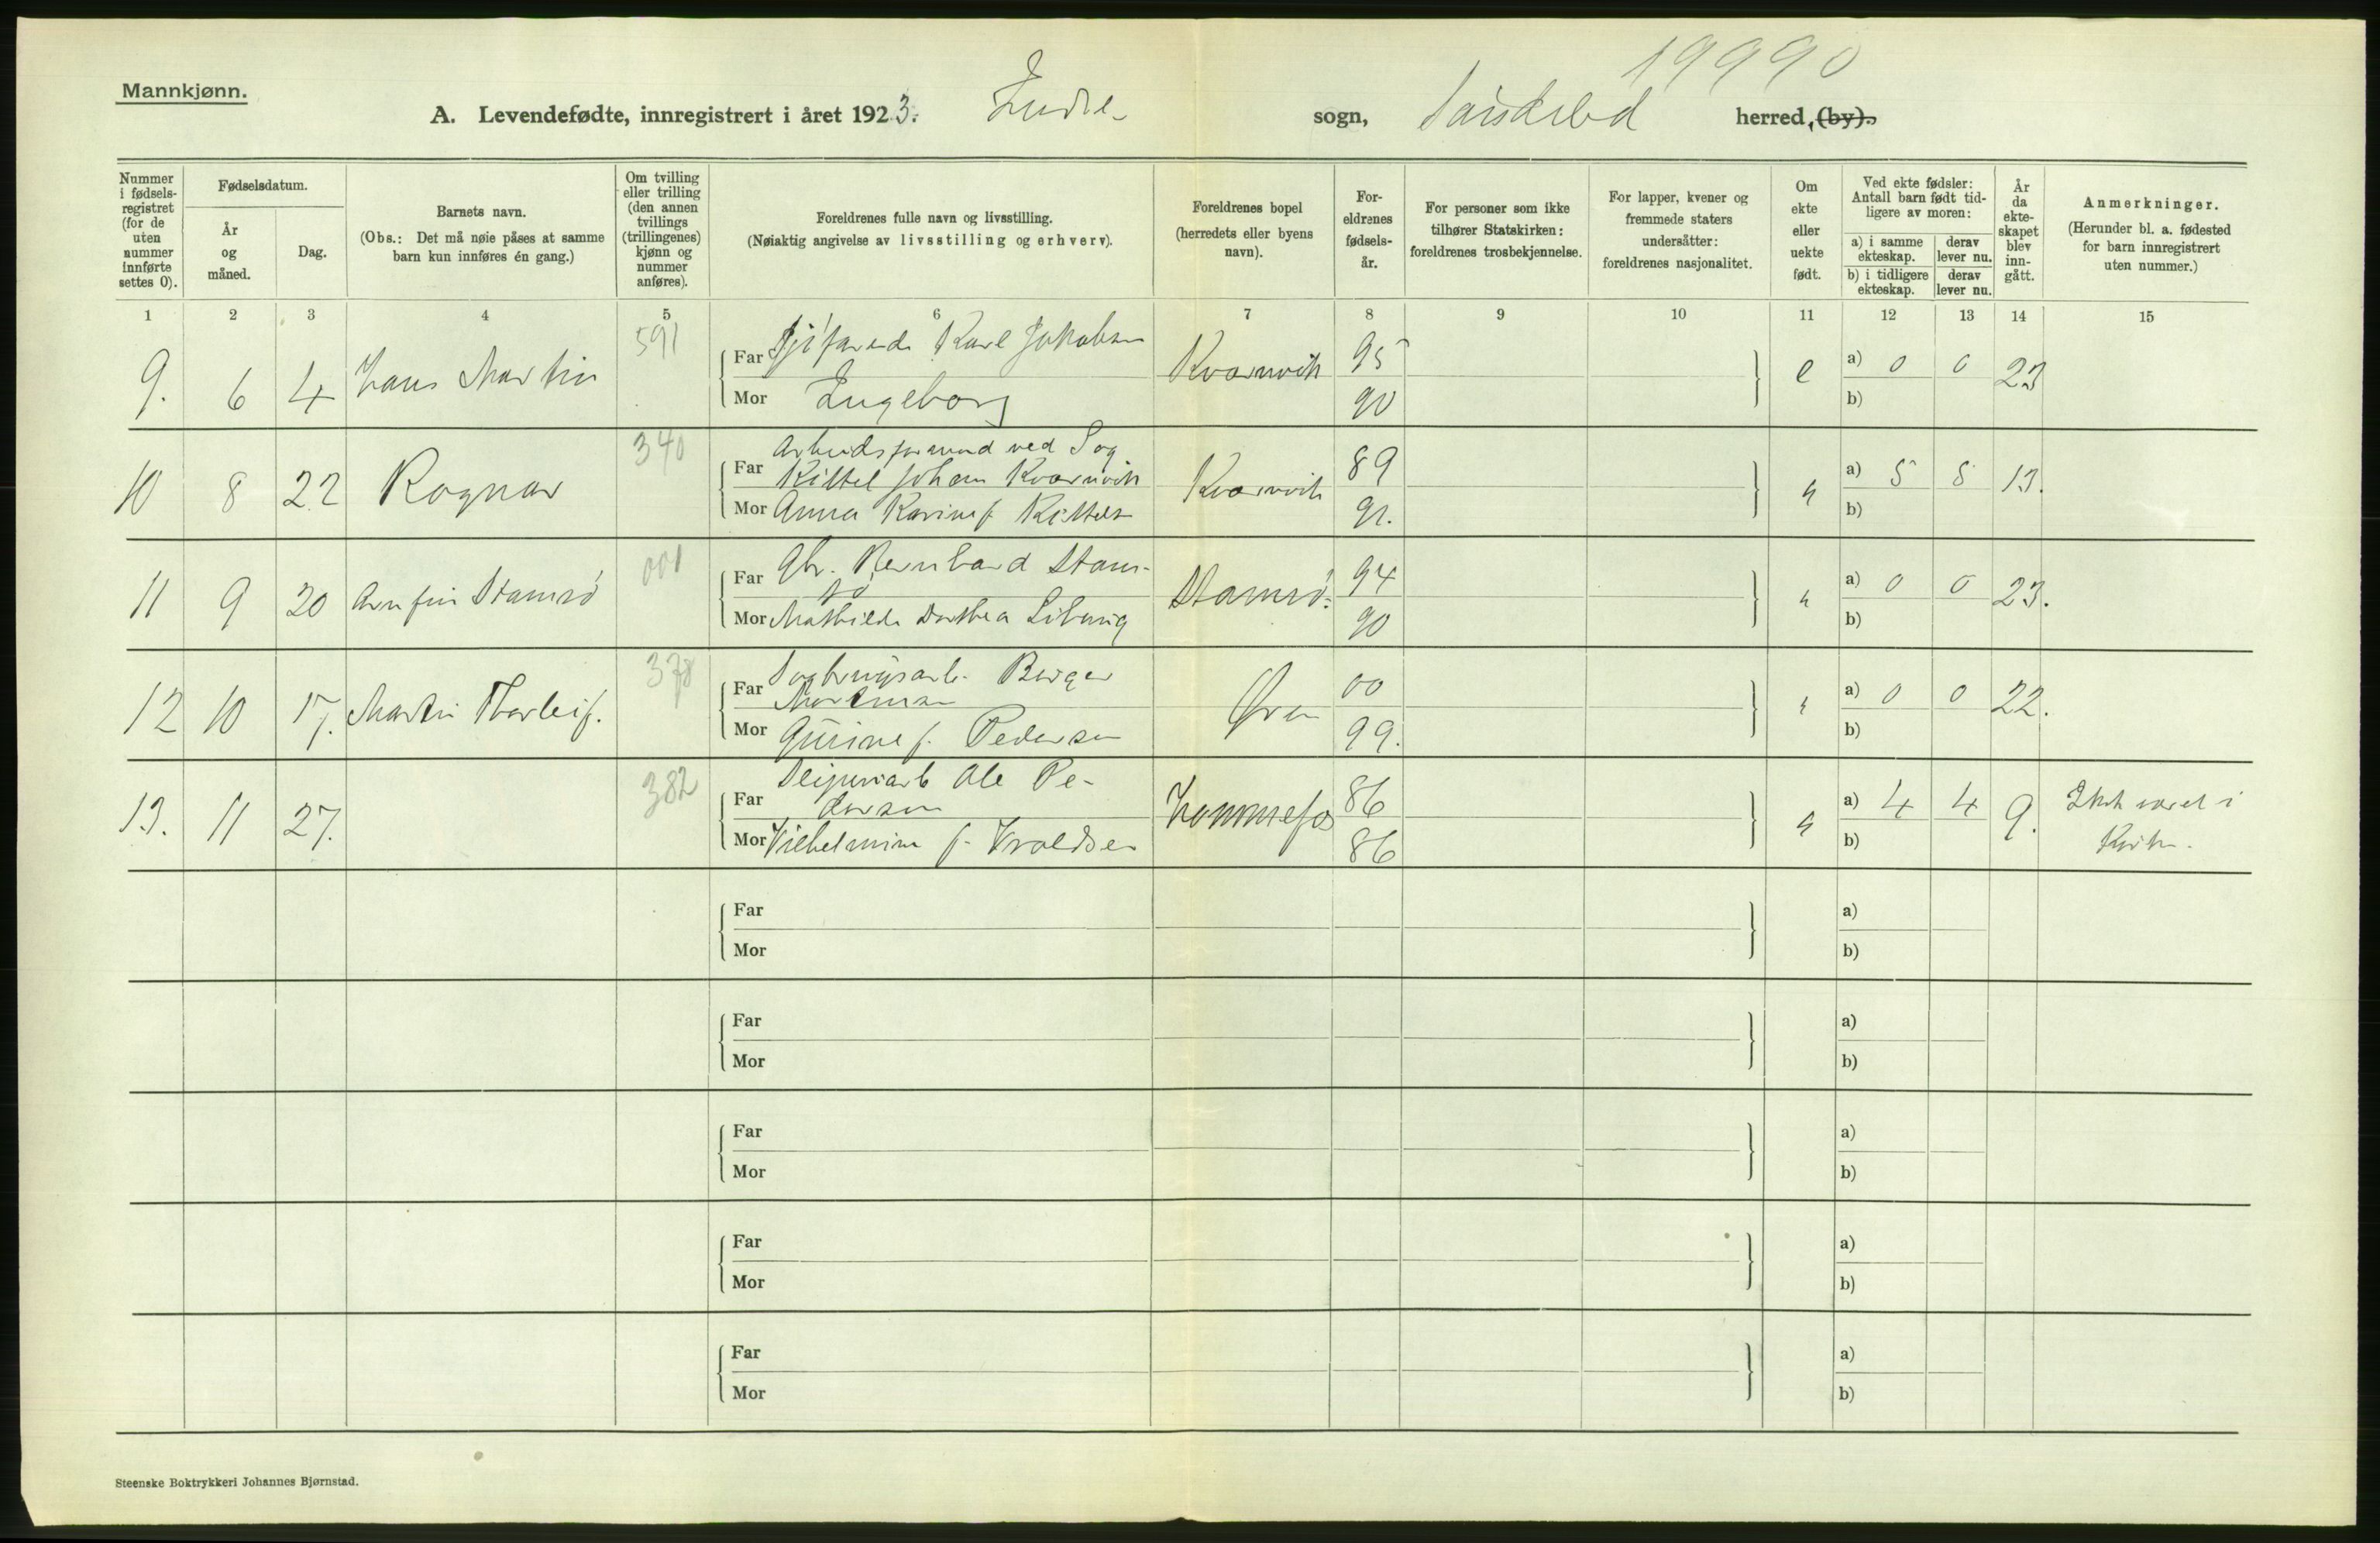 19990
Mannkjønn.
A. Levendefødte, innregistrert i året 1923. Indre sogn, herred, (by).
Nummer i fødsels-registret (for de uten nummer innførte settes 0).
Fødselsdatum.
År og måned.
Dag.
Barnets navn.
(Obs.: Det må nøie påses at samme barn kun innføres én gang.)
Om tvilling eller trilling (den annen tvillings (trillingenes) kjønn og nummer anføres).
Foreldrenes fulle navn og livsstilling.
(Nøiaktig angivelse av livsstilling og erhverv).
Foreldrenes bopel (herredets eller byens navn).
Foreldrenes fødsels-år.
For personer som ikke tilhører Statskirken: foreldrenes trosbekjennelse.
For lapper, kvener og fremmede staters undersåtter: foreldrenes nasjonalitet.
Om ekte eller uekte født.
Ved ekte fødsler: Antall barn født tidligere av moren:
a) i samme ekteskap. derav lever nu.
b) i tidligere ekteskap. derav lever nu.
År da ekte-skapet blev inn-gått.
Anmerkninger.
(Herunder bl. a. fødested for barn innregistrert uten nummer.)
1 2 3 4 5 6 7 8 9 10 11 12 13 14 15
591
9. 6 4 Hans Martin Far Karl Jakobsen Kvarnvik 95 e a) 0 0 23
Mor Ingeborg 90 b)
340 Arbeidsformand ved Sag
10 8 22 Ragnar Far Kittel Johan Kvarnvik Kvarnvik 89 " a) 5 5 13.
Mor Anna Karine f. Kittels 91. b)
001
11 9 20 Arnfin Stamsö Far Gbr. Bernhard Stam-
sö Stamsö. 94 " a) 0 0 23.
Mor Mathilde Dorthea 90 b)
378
12 10 17. Martin Thorleif. Far Sagbrugsarb. Birger
Martinsen 00 " a) 0 0 22.
Mor Gurine f. Pedersen 99. b)
382
13. 11 27. Far Sliperiarb Ole Pe-
dersen Hommefos 86 " a) 4 4 9. Ikke været i
Mor Vilhelmine f. Iroldsen 86 b) Kirke.
Far a)
Mor b)
Far a)
Mor b)
Far a)
Mor b)
Far a)
Mor b)
Far a)
Mor b)
Steenske Boktrykkeri Johannes Bjørnstad.